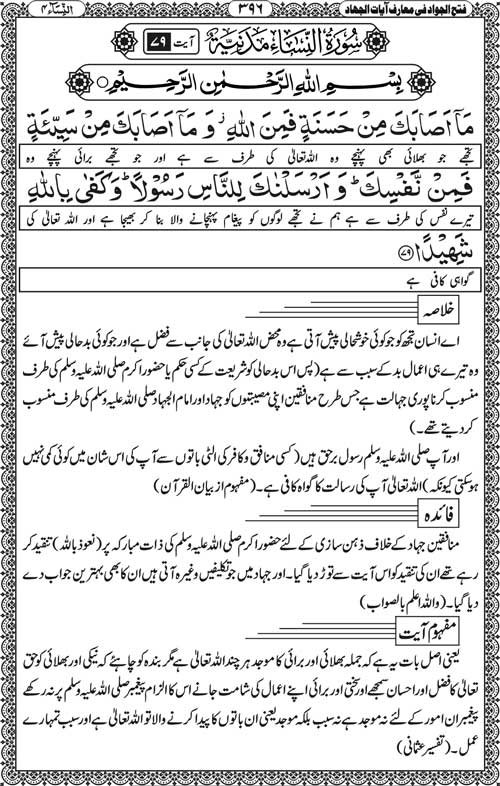 فتح الجواد فی معارف آیات الجهاد ۳۹۶ النساء ۴
سُوْرَةُ النِّسَاءِ مَدَنِيَّةٌ آیت ۷۹
بِسْمِ اللهِ الرَّحْمٰنِ الرَّحِيْمِ
مَآ اَصَابَكَ مِنْ حَسَنَةٍ فَمِنَ اللهِ ز وَ مَآ اَصَابَكَ مِنْ سَيِّئَةٍ
تجھے جو بھلائی بھی پہنچے وہ اللہ تعالیٰ کی طرف سے ہے اور جو تجھے برائی پہنچے وہ
فَمِنْ نَّفْسِكَ ط وَ اَرْسَلْنٰكَ لِلنَّاسِ رَسُوْلًا ط وَ كَفٰى بِاللهِ
تیرے نفس کی طرف سے ہے ہم نے تجھے لوگوں کو پیغام پہنچانے والا بنا کر بھیجا ہے اور اللہ تعالیٰ کی
شَهِيْدًا ﴿۷۹﴾
گواہی کافی ہے
خلاصہ
اے انسان تجھ کو جو کوئی خوشحالی پیش آتی ہے وہ محض اللہ تعالیٰ کی جانب سے فضل ہے اور جو کوئی بدحالی پیش آئے
وہ تیرے ہی اعمال بد کے سبب سے ہے (پس اس بدحالی کو شریعت کے کسی حکم یا حضور اکرم صلی اللہ علیہ وسلم کی طرف
منسوب کرنا پوری جہالت ہے جس طرح منافقین اپنی مصیبتوں کو جہاد اور امام الجہاد صلی اللہ علیہ وسلم کی طرف منسوب
کر دیتے تھے۔)
اور آپ صلی اللہ علیہ وسلم رسول برحق ہیں (کسی منافق و کافر کی الٹی باتوں سے آپ کی اس شان میں کوئی کمی نہیں
ہو سکتی کیونکہ) اللہ تعالیٰ آپ کی رسالت کا گواہ کافی ہے۔ (مفہوم از بیان القرآن)
فائدہ
منافقین جہاد کے خلاف ذہن سازی کے لئے حضور اکرم صلی اللہ علیہ وسلم کی ذات مبارکہ پر (نعوذ باللہ) تنقید کر
رہے تھے ان کی تنقید کو اس آیت سے توڑ دیا گیا۔ اور جہاد میں جو تکلیفیں وغیرہ آتی ہیں ان کا بھی بہترین جواب دے
دیا گیا۔ (واللہ اعلم بالصواب)
مفہوم آیت
یعنی اصل بات یہ ہے کہ جملہ بھلائی اور برائی کا موجد ہر چند اللہ تعالیٰ ہے مگر بندہ کو چاہئے کہ نیکی اور بھلائی کو حق
تعالیٰ کا فضل اور احسان سمجھے اور سختی اور برائی اپنے اعمال کی شامت جانے اس کا الزام پیغمبر صلی اللہ علیہ وسلم پر نہ رکھے
پیغمبر ان امور کے لئے نہ موجد ہے نہ سبب بلکہ موجد یعنی ان باتوں کا پیدا کرنے والا تو اللہ تعالیٰ ہے اور سبب تمہارے
عمل۔ (تفسیر عثمانی)